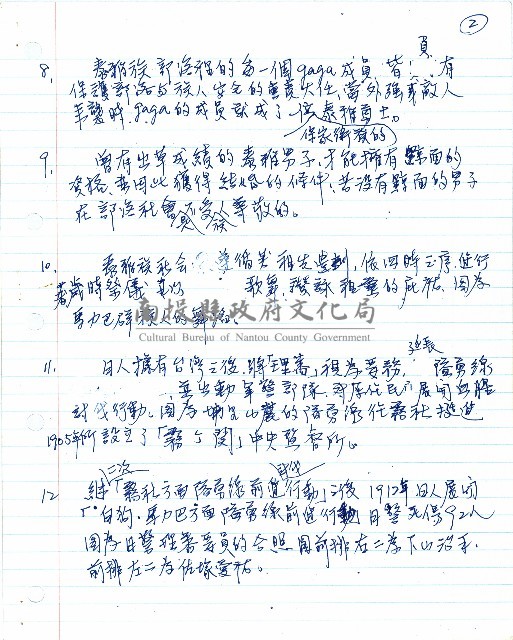 ②
8. 泰雅族部落裡的每一個gaga成員,皆負有
保護部落与族人安全的義務責任,當外強或敵人
來襲時,gaga的成員就成了保家衛族的泰雅勇士。
9. 曾有出草成績的泰雅男子,才能擁有黥面的
資格,並因此獲得結婚的條件,若沒有黥面的男子
在部落社會是不受人尊敬的。
10. 泰雅族社会遵循祖先遺訓,依四時之序,進行
歲時祭儀 歌舞,祈求祖靈的庇祐,圖為
馬力巴群族人的舞蹈。
11. 日人擁有台灣之後,將「理蕃」視為要務, 延長隘勇線
,並出動軍警部隊,對原住民展開血腥
討伐行動。圖為 山麓的隘勇線,往霧社推進
1905年所設立了「霧ヶ関」中央監督所。
12. 繼二次「霧社方面隘勇線前進行動」之後,1912年日人展開
「白狗、馬力巴方面隘勇線前進行動」,日警死傷92人,
圖為日警理蕃要員的合照,圖前排左二為下山治平,
前排左二為佐塚愛祐。
南投縣政府文化局
Cultural Bureau of Nantou County Government